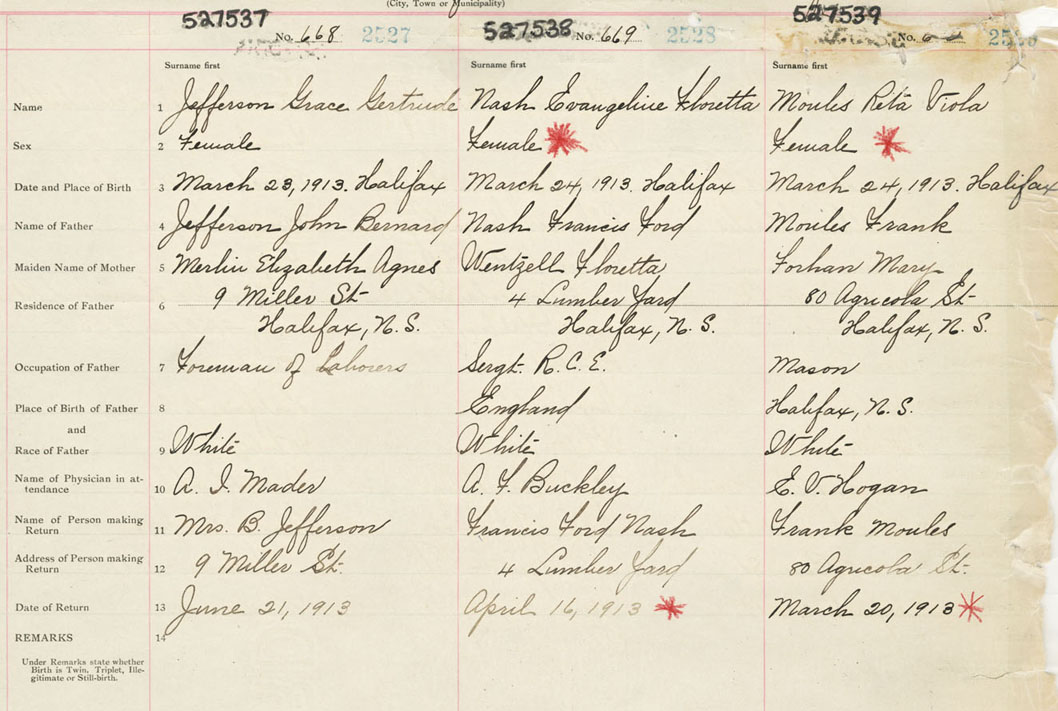 (City, Town or Municipality)
527537 527538 527539
No. 668 2527 No. 669 2528 No. 6
Surname first Surname first Surname first
Name 1 Jefferson Grace Gertrude Nash Evangeline Floretta Moules Rita Viola
Sex 2 Female Female Female
Date and Place of Birth 3 March 23, 1913. Halifax March 24, 1913. Halifax March 24, 1913. Halifax
Name of Father 4 Jefferson John Bernard Nash Francis Ford Moules Frank
Maiden Name of Mother 5 Merlin Elizabeth Agnes Wentzell Floretta Forhan Mary
Residence of Father 6 9 Miller St- 4 Lumber Yard 80 Agricola St-
Halifax, N.S. Halifax, N.S. Halifax, N.S.
Occupation of Father 7 Foreman of Laborers Sergt. R.C.E. Mason
Place of Birth of Father 8 England Halifax, N.S.
and
Race of Father 9 White White White
Name of Physician in at-
tendance 10 A. I. Mader A. F. Buckley E. V. Hogan
Name of Person making
Return 11 Mrs. B. Jefferson Francis Ford Nash Frank Moules
Address of Person making
Return 12 9 Miller St. 4 Lumber Yard 80 Agricola St.
Date of Return 13 June 21, 1913 April 16, 1913 March 20, 1913
REMARKS 14
Under Remarks state whether
Birth is Twin, Triplet, Ille-
gitimate or Still-birth.